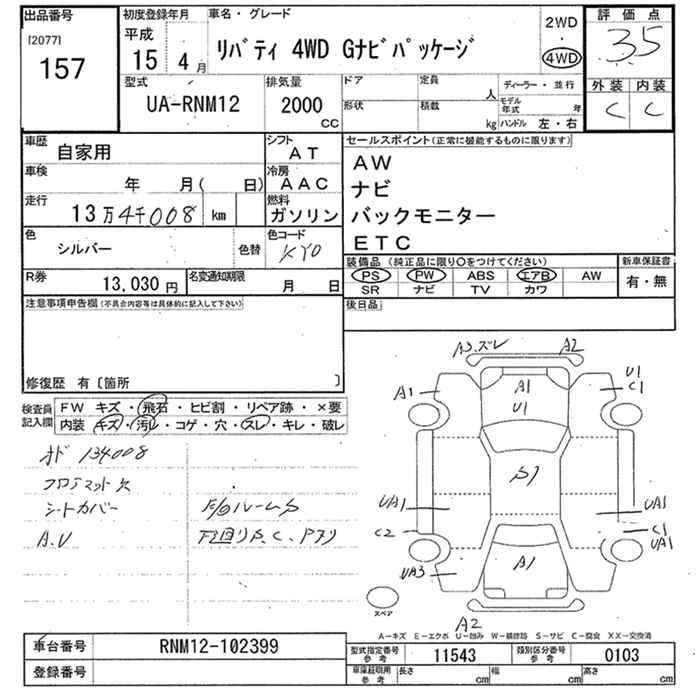 出品番号
[2077]
157
初度登録年月
平成
15年 4月
車名・グレード
リバティ 4WD Gナビパッケージ
2WD
・
4WD
評価点
3.5
外装 内装
C C
型式
UA-RNM12
排気量
2000
cc
ドア
形状
定員
人
積載
kg
ディーラー・並行
モデル年式 年
ハンドル 左・右
車歴
自家用
シフト
AT
車検
年 月( 日)
冷房
AAC
走行
13万4千008 km
燃料
ガソリン
色
シルバー
色替
色コード
KY0
R券
13,030円
名変通知期限
月 日
セールスポイント(正常に機能するものに限ります)
AW
ナビ
バックモニター
ETC
装備品(純正品に限り○をつけてください)
PS PW ABS エアB AW
SR ナビ TV カワ
新車保証書
有・無
後日品
注意事項申告欄(不具合内容等は具体的に記入して下さい)
修復歴 有〔箇所 〕
検査員記入欄
FW キズ・飛石・ヒビ割・リペア跡・×要
内装 キズ・汚レ・コゲ・穴・スレ・キレ・破レ
オド 134008
フロアマット欠
シートカバー
A.V
下回りS、C、Pアリ
A3.ズレ A2
A1 A1 U1 C1
U1
S7
UA1 UA1
C2 C1
UA1
UA3 A1
A2
スペア
A-キズ E-エクボ U-凹み W-補修跡 S-サビ C-腐食 XX-交換済
車台番号
RNM12-102399
登録番号
型式指定番号参考
11543
類別区分番号参考
0103
車庫証明用参考
長さ cm
幅 cm
高さ cm